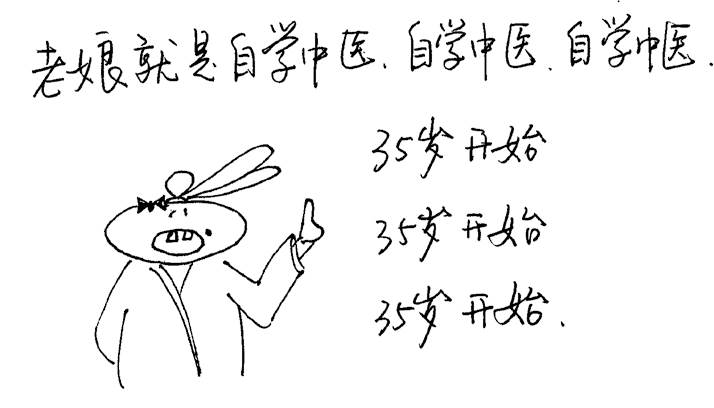 老娘就是自学中医、自学中医、自学中医.
35岁开始
35岁开始
35岁开始.